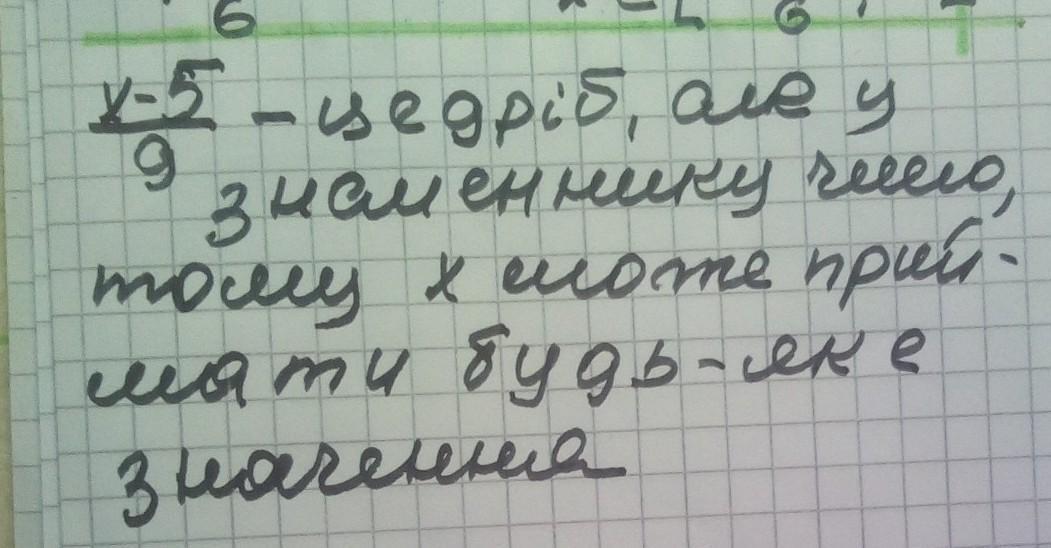 6 6
x-5/9 – це дріб, але у
знаменнику число,
тому x може прий-
мати будь-яке
значення